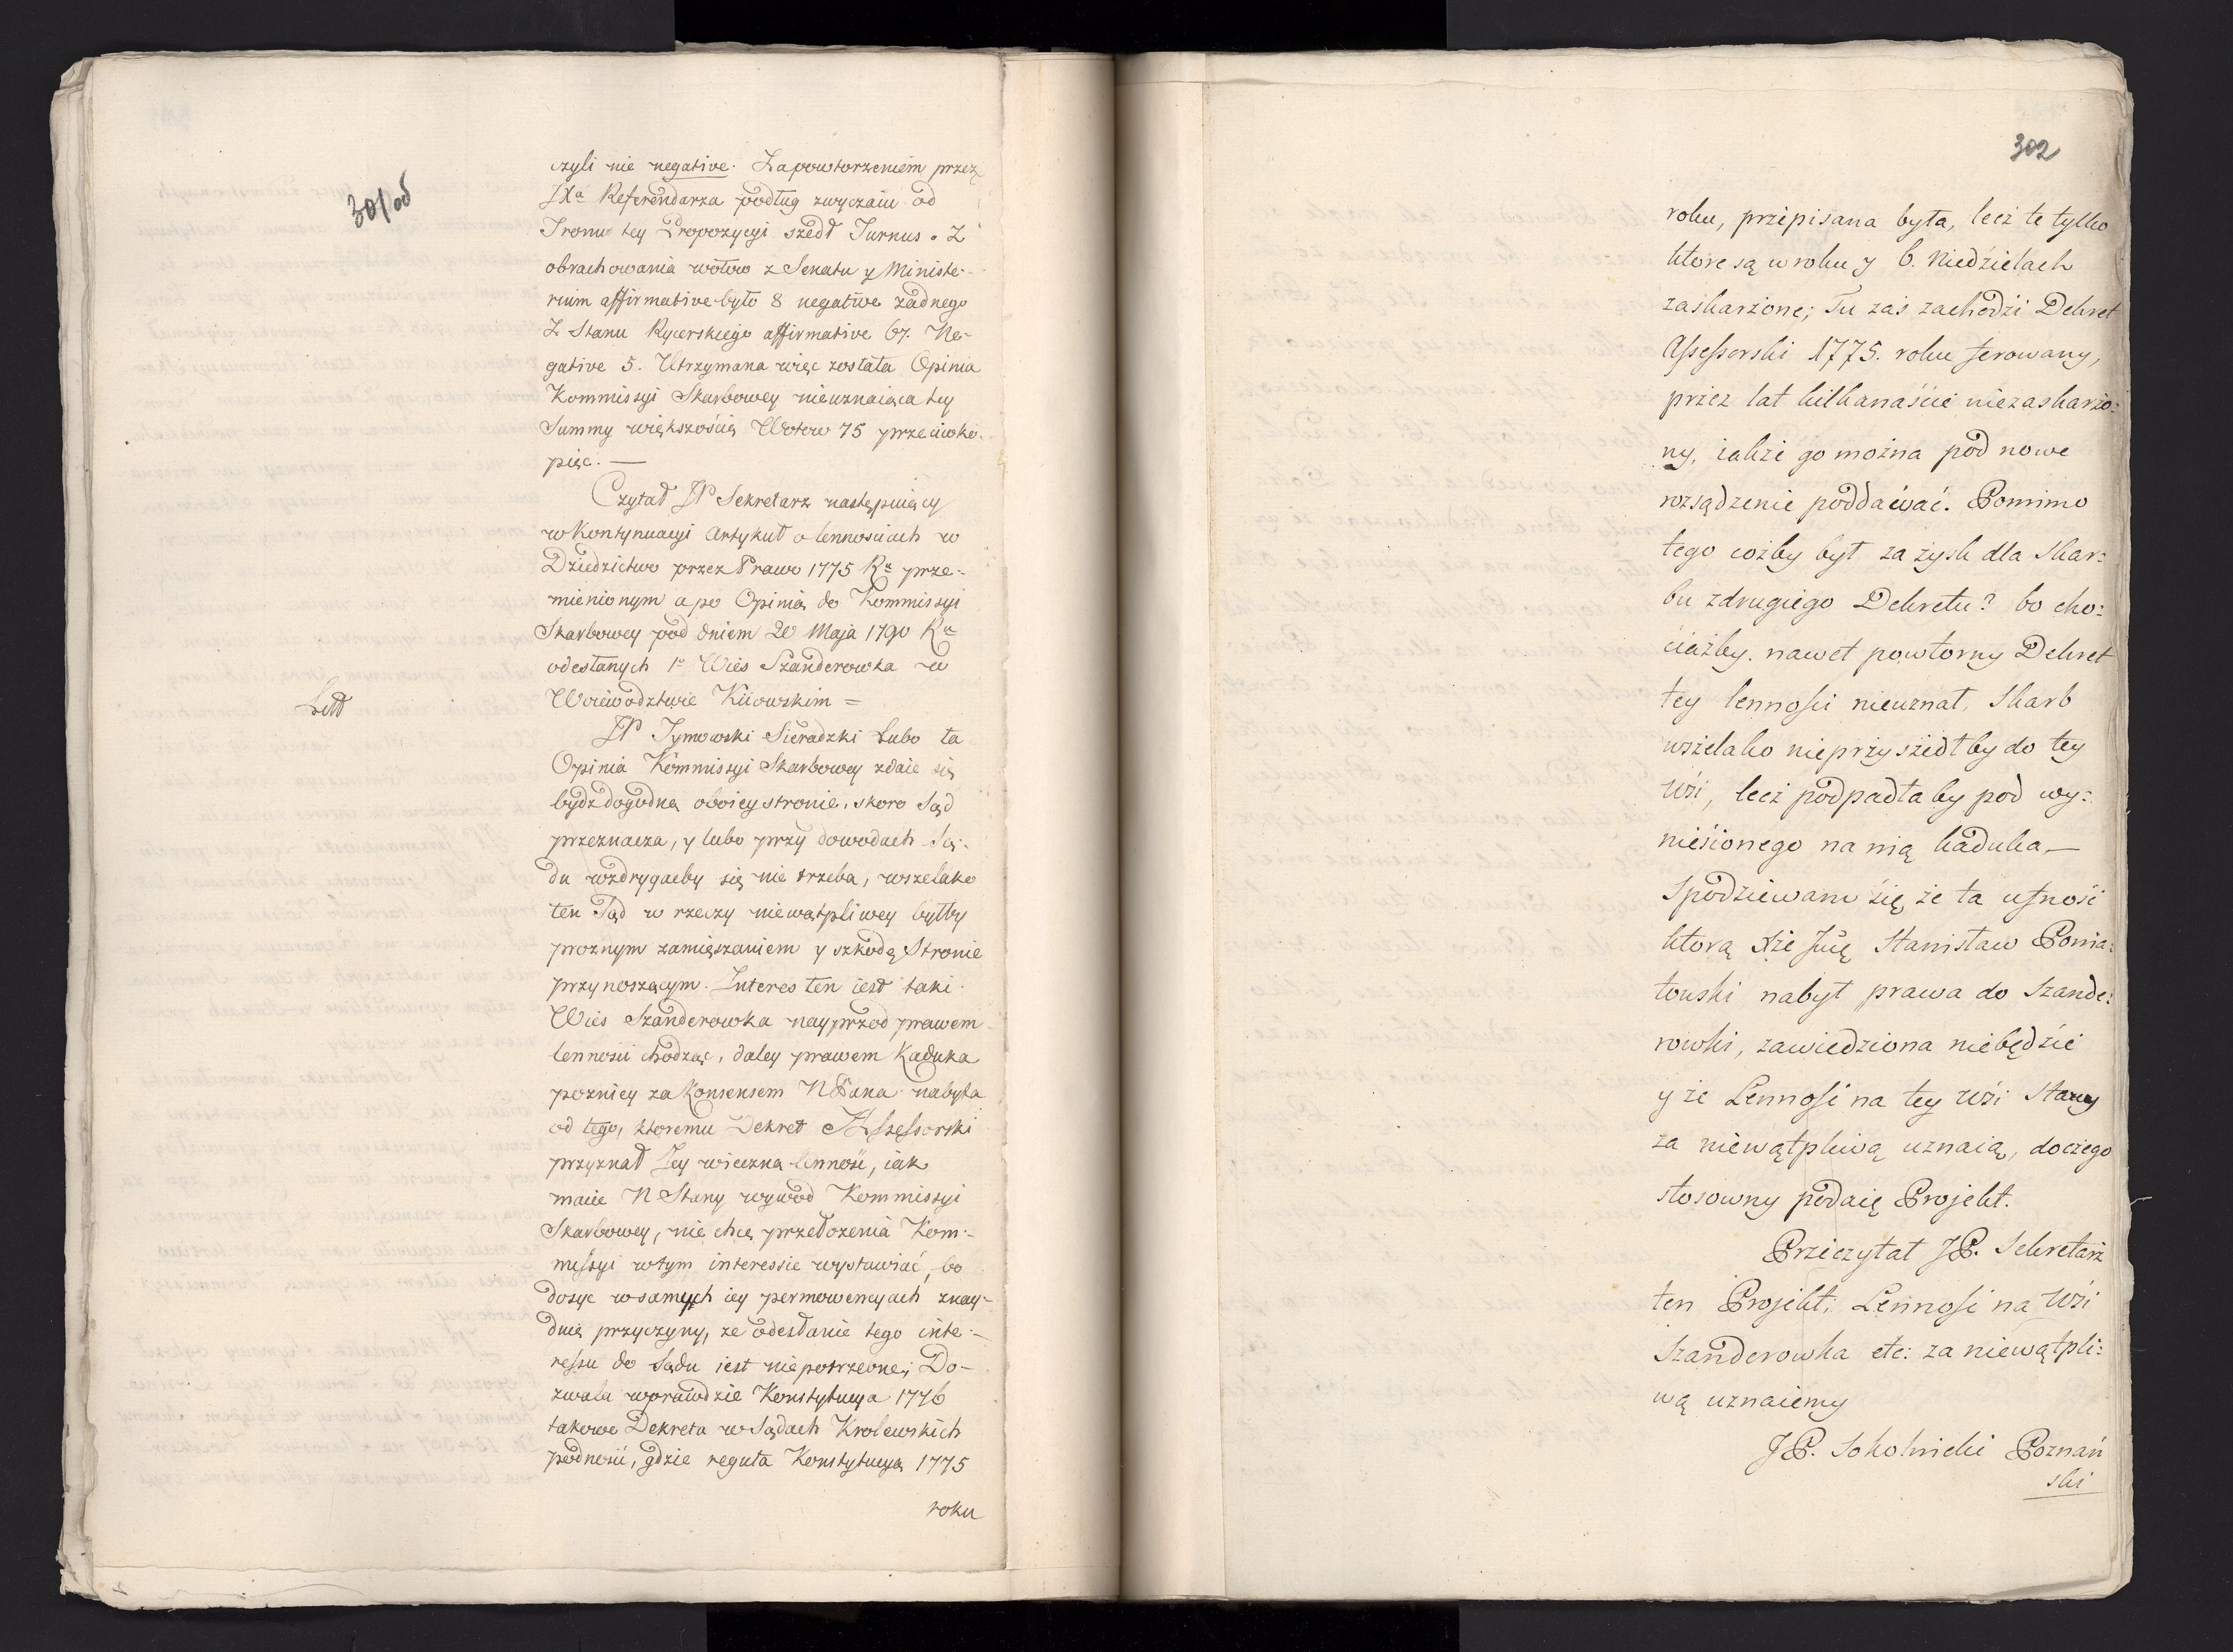 301 od
czyli nie negative. Za powtorzeniem przez
JXa Referendarza podług zwyczaiu od
Tronu tey Propozycyi szedł Turnus. Z
obrachowania wotow z Senatu y Ministe-
rium affirmative było 8 negative żadnego
Z Stanu Rycerskiego affirmative 67. Ne-
gative 5. Utrzymana więc została Opinia
Kommissyi Skarbowey nieuznaiąca tey
Summy większością Wotow 75 przeciwko
pięc. —
Czytał JP Sekretarz następuiący
w Kontynuacyi Artykuł o lennosciach w
Dziedzictwo przez Prawo 1775 Ru prze-
mienionym a po Opinią do Kommissyi
Skarbowey pod dniem 20 Maja 1790 Ru
odesłanych 1o Wieś Szanderowka w
Woiewodztwie Kiiowskim =
JP Tymowski Sieradzki Lubo ta
Opinia Kommissyi Skarbowey zdaie się
bydz dogodną oboiey stronie, skoro Sąd
przeznacza, y lubo przy dowodach Są-
du wzdrygacby się nie trzeba, wszelako
ten Sąd w rzeczy niewątpliwey byłby
proznym zamięszaniem y szkodą Stronie
przynoszącym. Interes ten iest taki.
Wieś Szanderowka nayprzod prawem
lennosci chodząc, daley prawem Kaduka
pozniey za Konsensem NPana nabyta
od tego, ktoremu Dekret Assessorski
przyznał Jey wieczną lenność, iak
macie N Stany wywod Kommissyi
Skarbowey, nie chcę przełożenia Kom-
messyi w tym interessie wystawiać, bo
dosyc w samych iey permowencyach znay-
duię przyczyny, ze odesłanie tego inte-
ressu do Sądu iest niepotrzebne; Do-
zwala wprawdzie Konstytucya 1776
takowe Dekreta w Sądach Krolewskich
podnosić, gdzie reguła Konstytucyą 1775
roku
302
roku, przepisana była, lecz te tylko
ktore są w roku y 6. Niedzielach
zaskarzone; Tu zaś zachodzi Dekret
Assessorski 1775. roku ferowany,
przez lat kilkanaście niezaskarżo:
ny, iakże go można pod nowe
rozsądzenie poddawać. Pomimo
tego cożby był za zysk dla Skar:
bu z drugiego Dekretu? bo cho:
ciażby nawet powtorny Dekret
tey lenności nieuznał, Skarb
wszelako nieprzyszedłby do tey
Wsi, lecz podpadłaby pod wy:
niesionego na nią kaduka —
Spodziewam się, że ta ufność
ktorą Xże Jmę Stanisław Ponia:
towski nabył prawa do Szande:
rowki, zawiedziona niebędzie
y że Lennośc na tey Wsi Stany
za niewątpliwą uznaią, doczego
stosowny podaię Projekt.
Przeczytał JP. Sekretarz
ten Projekt: Lennośc na Wsi
Szanderowka etc: za niewątpli:
wą uznaiemy
JP. Sokolnicki Poznań
ski